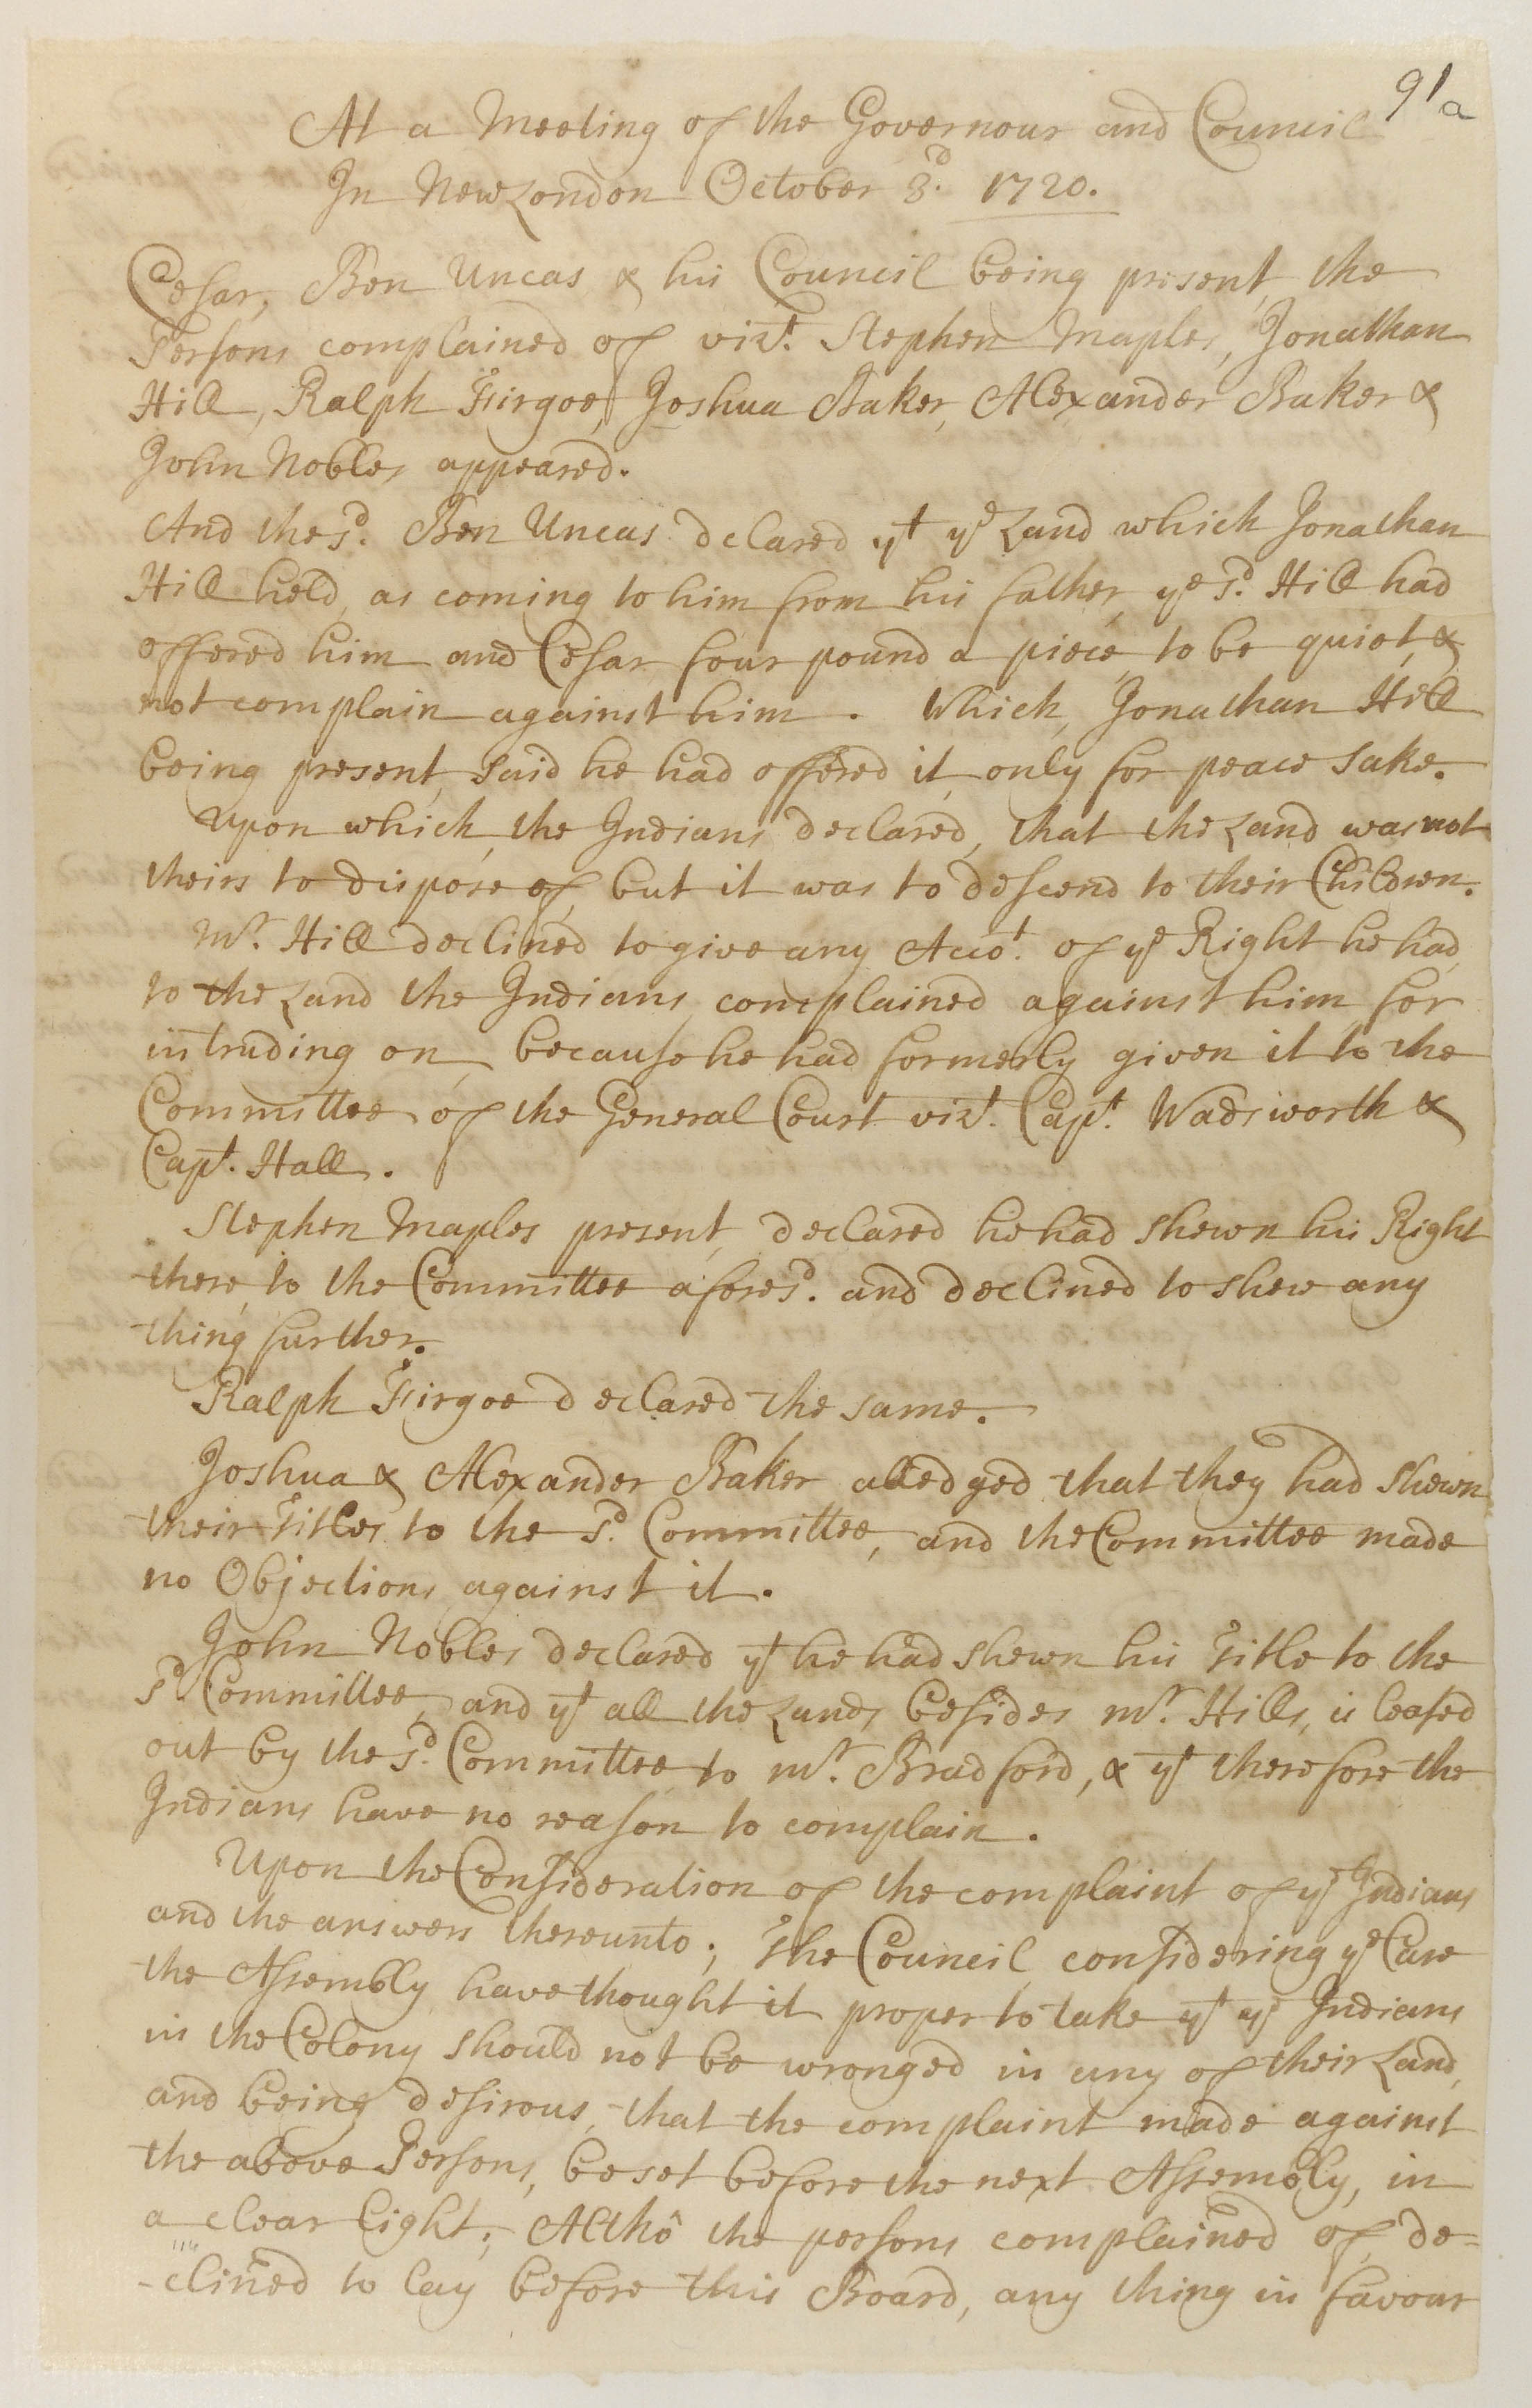 91a
At a Meeting of the Governour and Council
In New London October 3d. 1720.
Cesar, Ben Uncas & his Council being present, the
Persons complained of vizt. Stephen Maples, Jonathan
Hill, Ralph Firgoe, Joshua Baker, Alexander Baker &
John Nobles appeared.
And the sd. Ben Uncas declared yt ye Land which Jonathan
Hill held, as coming to him from his father, ye sd. Hill had
offered him and Cesar four pound a piece, to be quiet, &
not complain against him. Which, Jonathan Hill
being present, said he had offered it, only for peace sake.
Upon which, the Indians declared, that the Land was not
theirs to dispose of, but it was to descend to their Children.
Mr. Hill declined to give any Accot. of ye Right he had,
to the Land the Indians complained against him for
intruding on, because he had formerly given it to the
Committee of the General Court vizt. Capt. Wadsworth &
Capt. Hall.
Stephen Maples present, declared he had shewn his Right
there, to the Committee aforesd. and declined to shew any
thing further.
Ralph Firgoe declared the same.
Joshua & Alexander Baker alledged that they had shewn
their Titles to the sd. Committee, and the Committee made
no Objections against it.
John Nobles declared yt he had shewn his Title to the
sd. Committee, and yt all the Lands besides Mr. Hills, is leased
out by the sd. Committee to Mr. Bradford, & yt therefore the
Indians have no reason to complain.
Upon the Consideration of the complaint of ye Indians
and the answers thereunto; The Council considering ye Care
the Assembly have thought it proper to take yt ye Indians
in the Colony should not be wronged in any of their Land,
and being desirous, that the complaint made against
the above Persons, be set before the next Assembly, in
a clear light; Altho the persons complained of, de=
-clined to lay before this Board, any thing in favour